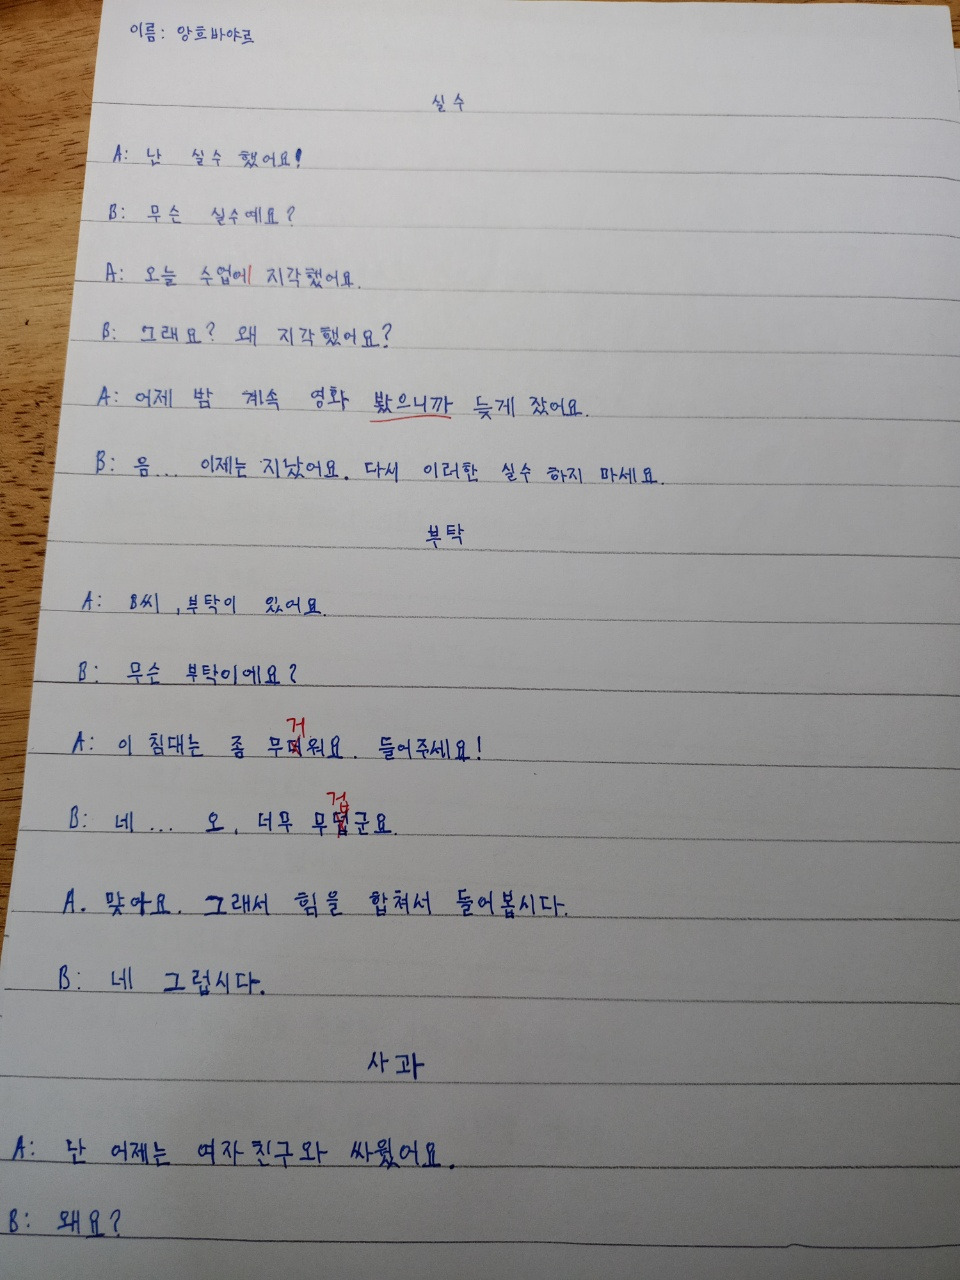 이름: 앙흐바야르
실수
A: 난 실수 했어요!
B: 무슨 실수예요?
A: 오늘 수업에 지각했어요.
B: 그래요? 왜 지각했어요?
A: 어제 밤 계속 영화 봤으니까 늦게 잤어요.
B: 음... 이제는 지났어요. 다시 이러한 실수 하지 마세요.
부탁
A: B씨, 부탁이 있어요.
B: 무슨 부탁이에요?
거
A: 이 침대는 좀 무더워요. 들어주세요!
겁
B: 네... 오, 더무 무덥군요.
A. 맞아요. 그래서 힘을 합쳐서 들어봅시다.
B: 네 그럽시다.
사과
A: 난 어제는 여자친구와 싸웠어요.
B: 왜요?